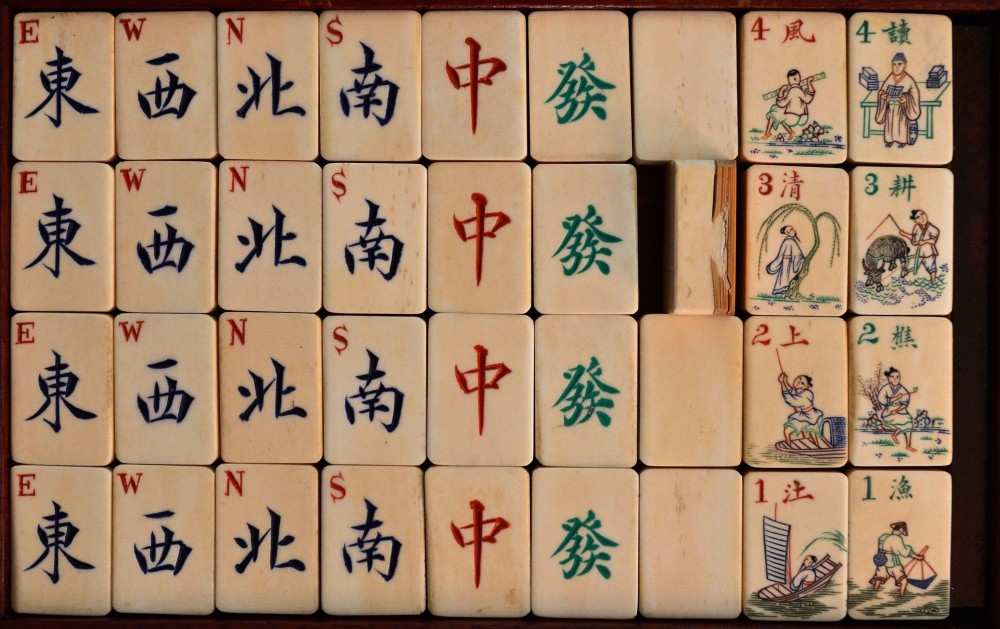 E W N S 4 風 4 讀
東 西 北 南 中 發
E W N S 3 清 3 耕
東 西 北 南 中 發
E W N S 2 上 2 樵
東 西 北 南 中 發
E W N S 1 江 1 漁
東 西 北 南 中 發